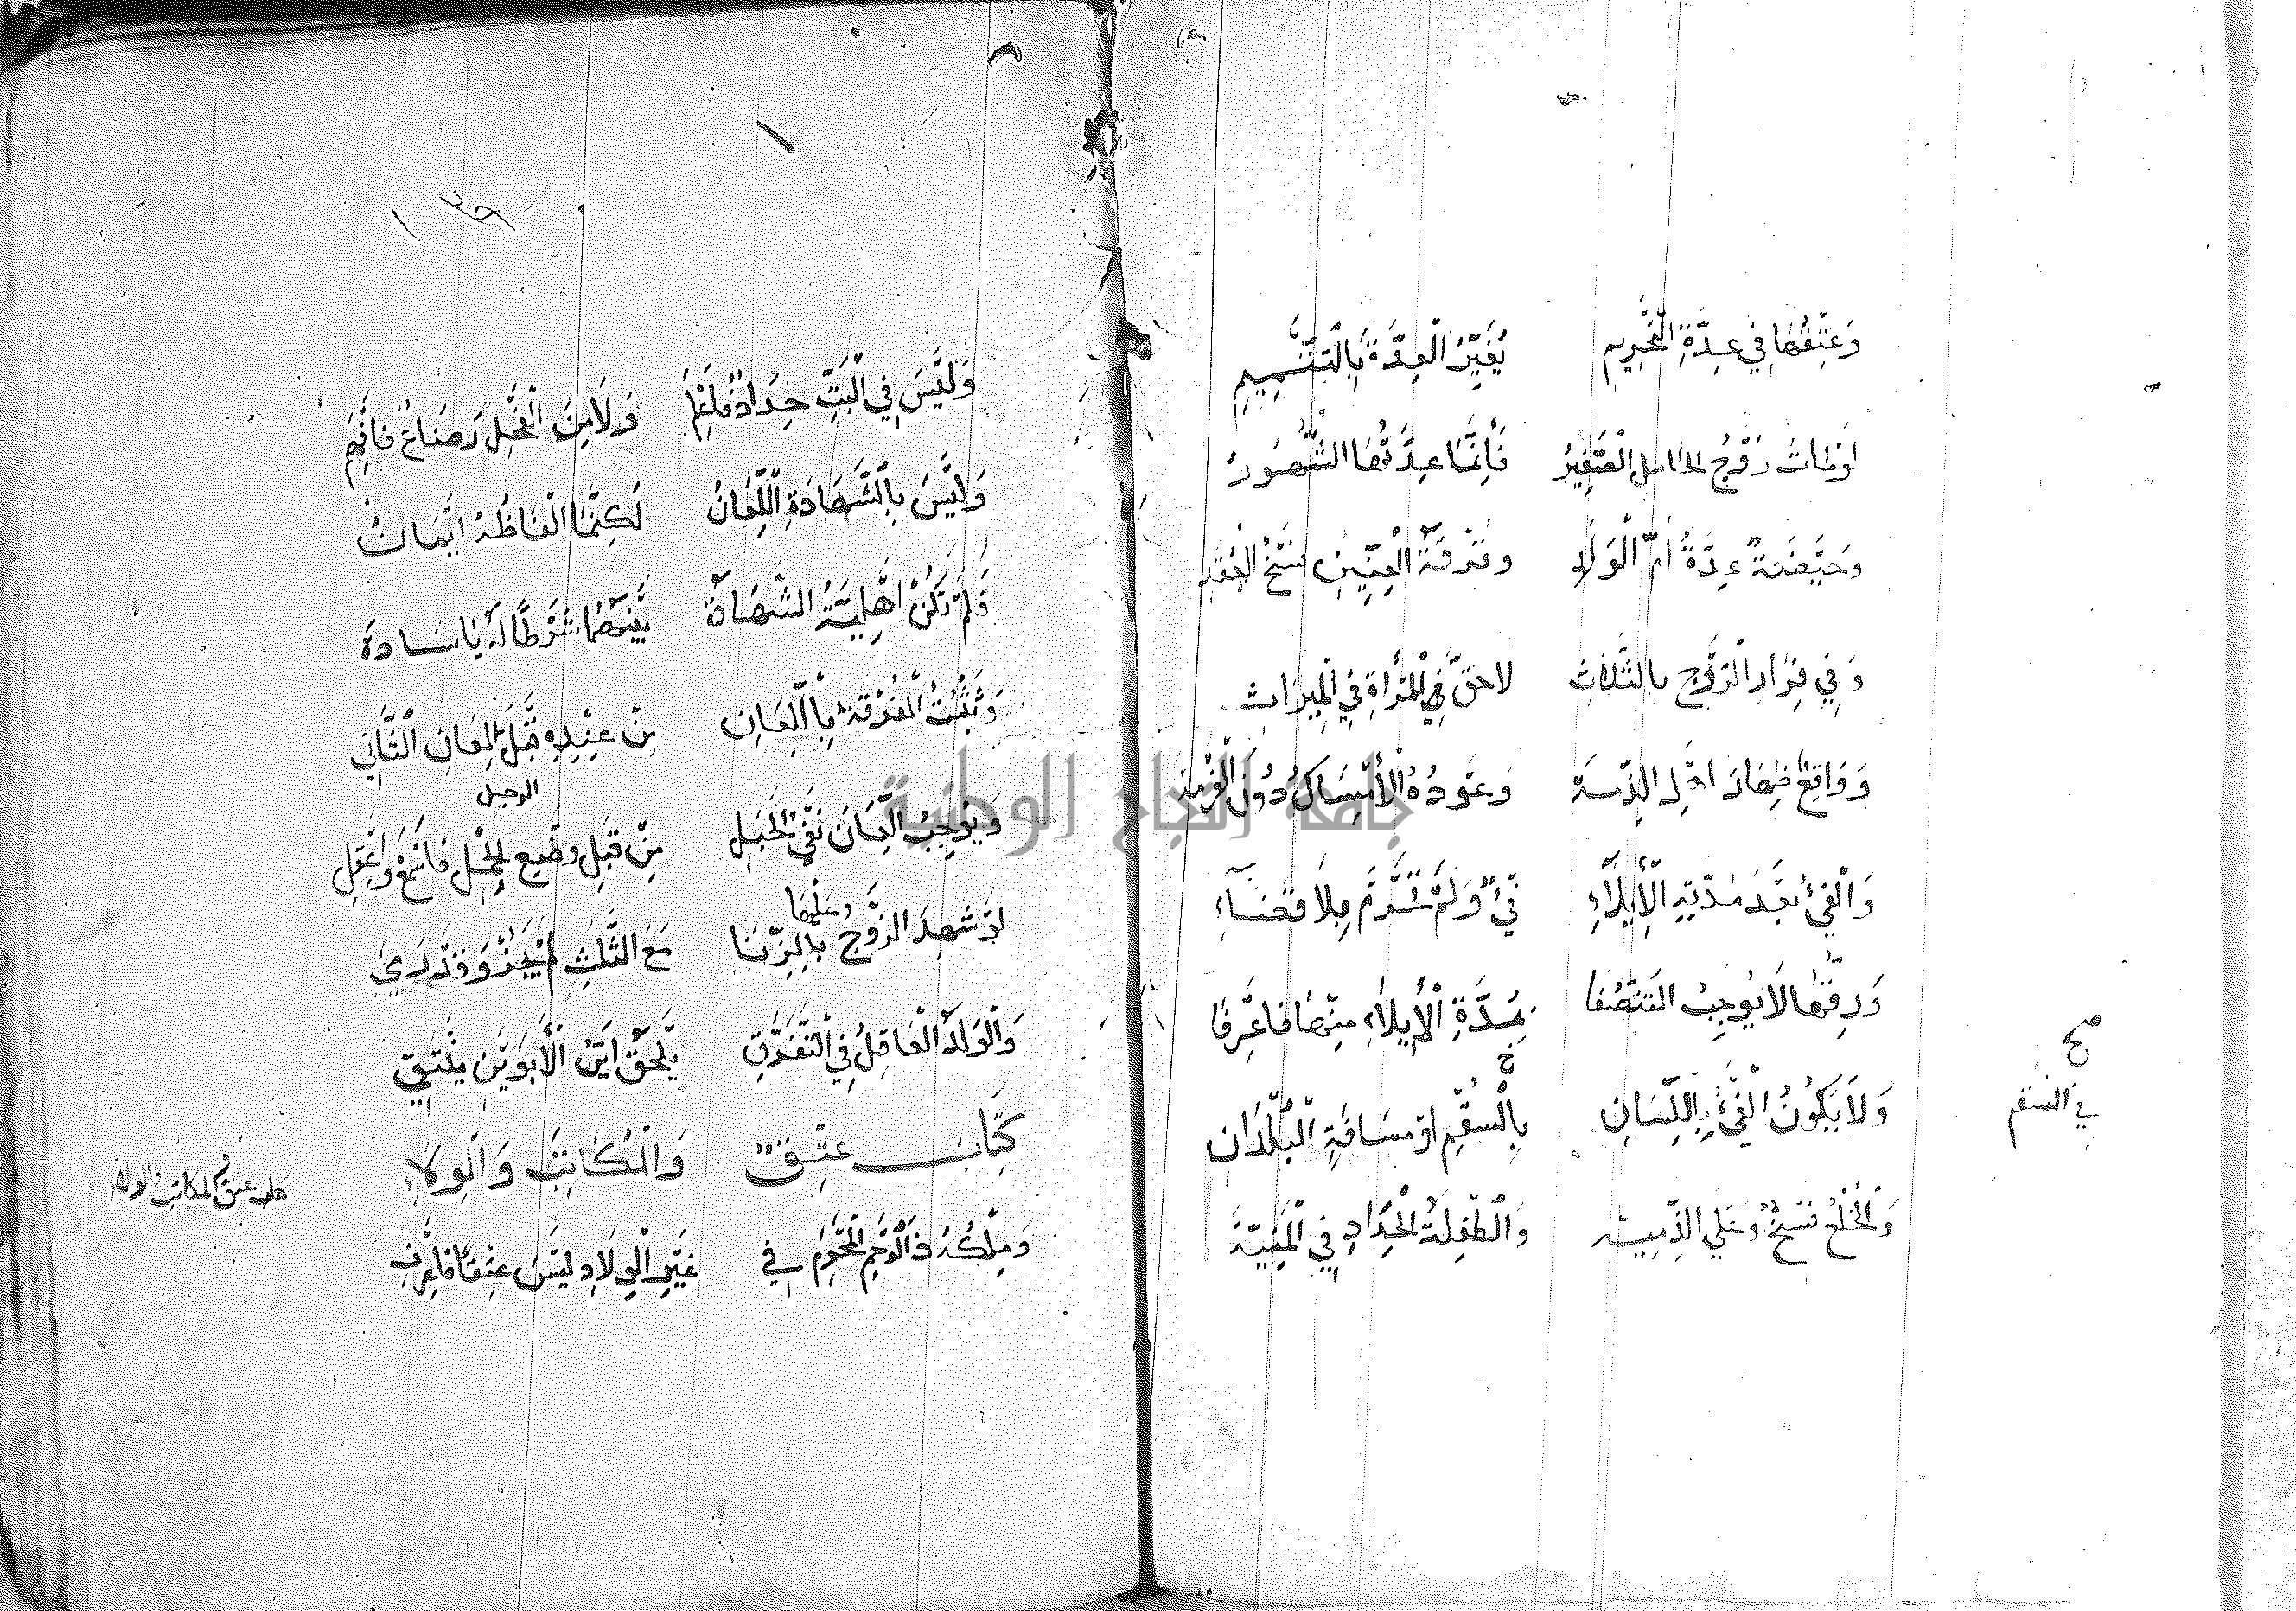 وَعِتْقُهَا فِي عِدَّةِ التَّحْرِيمِ يُغَيِّرُ الْعِدَّةَ بِالتَّتْمِيمِ
اوْمَاتَ زَوْجُ الحامل الصَّغِيرُ فَإِنَّمَا عِدَّتُهَا الشُّهُورُ
وَحَيْضَةٌ عِدَّةُ أُمِّ الْوَلَدِ وَفُرْقَةُ الْعِنِّينِ فَسْخُ الْعَقْدِ
وَفِي فِرَارِ الزَّوْجِ بالثَّلَاثِ لاحَقَّ لِلْمَرْأَةِ فِي الْمِيرَاثِ
وَوَاقِعٌ ظِهَارُ اهْلِ الذِّمَّةِ وَعَوْدُهُ الْأِمْسَاكُ دُونَ الْعَزْمَةِ
وَالْفَيْءُ بَعْدَ مُدَّةِ الْأِيلَاءِ فَيْءٌ وَلَمْ تُحَرَّمْ بِلَا قَضَاءِ
وَرِقُّهَا لَايُوجِبُ التَّنَصُّفَا بِمُدَّةِ الْأِيلَاءِ مِنْهَا فَاعْرِفَا
وَلَا يَكُونُ الْفَيْءُ بِاللِّسَانِ بِالسُّقْمِ اوْ مَسَافَةِ الْبُلْدَانِ
صح
في السقم
وَالْخُلْعُ فَسْخٌ وَعَلَي الذِّمِّيَّه وَالطِّفْلَةِ الْحِدَادُ فِي الْمَنِيَّةِ
وَلَيْسَ فِي الْبَتِّ حِدَادٌ فَاعْلَمِ وَلَامِنَ الْفَحْلِ رَضَاعٌ فَافْهَمِ
وَلَيْسَ بِالشَّهَادَةِ اللِّعَانُ لَكِنَّمَا الْفَاظُهُ ايْمَانُ
وَلَمْ تَكُنْ اهْلِيَّةُ الشَّهَادَةْ بَيْنَهُمَا شَرْطًا لَهُ يَا سَادَةْ
وَتَثْبُتُ الْفُرْقَةُ بِاللِّعَانِ مِنْ عِنْدِهِ قَبْلَ لِعَانِ الثَّانِي
وَيُوجِبُ اللِّعَانَ نَفْيُ الْحَبَلِ مِنْ قَبْلِ وَضْعِ الْحَمْلِ فَاسْمَعْ وَاعْقِلِ
اذْ شَهِدَ الزَّوْجُ عَلَيْهَا بالزِّنَا مَعَ الثَّلَثِ لَمْ يَجُزْ وَقَدْ
وَالْوَلَدُ الْعَاقِلُ فِي التَّفَرُّقِ يَلْحَقُ ايَّ الْأَبَوَيْنِ يَلْتَقِي
كِتَابُ عِتْقٍ وَالْمُكَاتَبِ وَالْوِلَاءِ
عتق المكاتب والولاء
وَمِلْكُهُ ذَا الرَّحِمِ الْمَحْرَمِ فِي غَيْرِ الْوِلَادِ لَيْسَ عِتْقًا فَاعْرِفِ
جامعة النجاح الوطنية